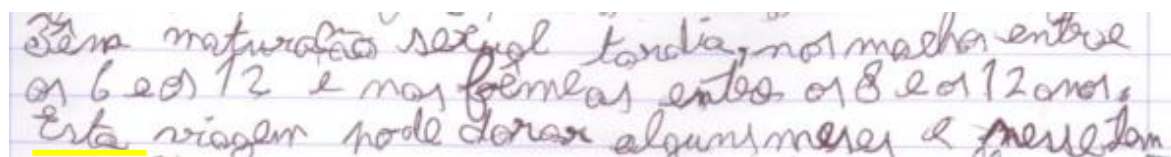 Têm maturação sexual tardia, nos machos entre
os 6 e os 12 e nas fêmeas entre os 8 e os 12 anos.
Esta viagem pode dorar alguns meses e nesse tem